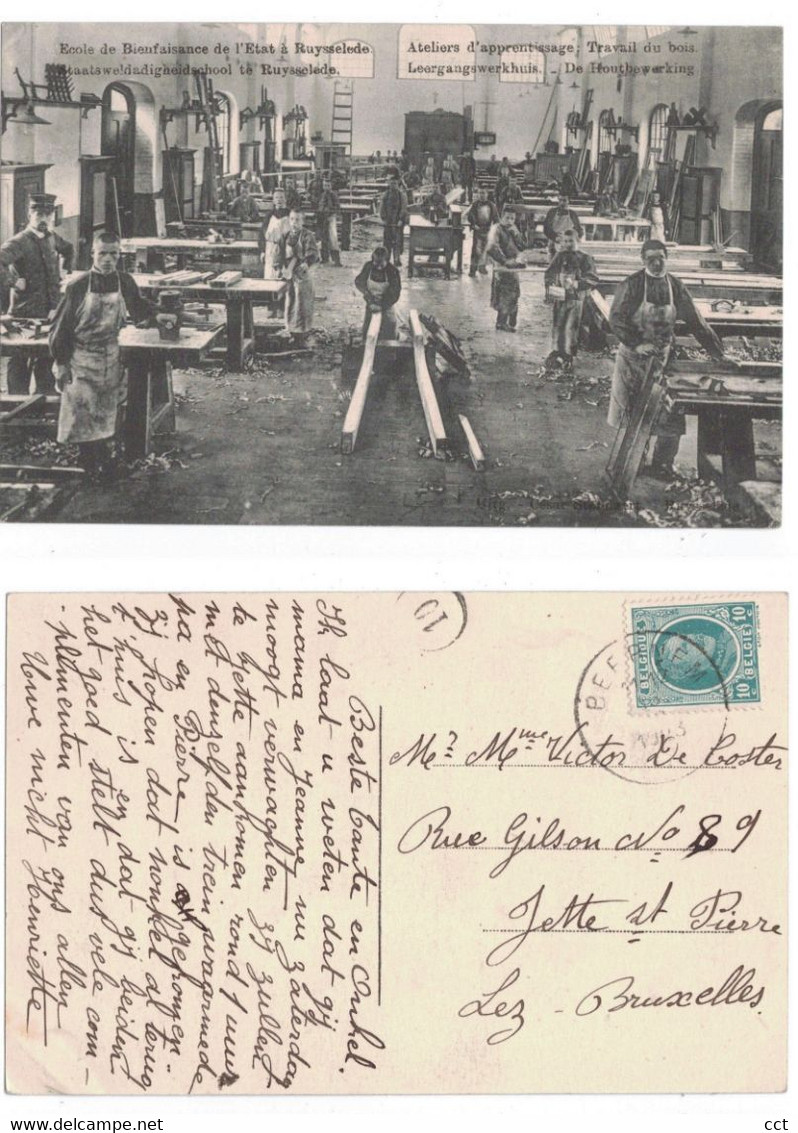 Ecole de Bienfaisance de l'Etat à Ruysselede.
Staatsweldadigheidschool te Ruysselede.
Ateliers d'apprentissage; Travail du bois.
Leergangswerkhuis. - De Houtbewerking
Uitg
10
BELGIQUE
BELGIË
10 c
10 c
Beste tante en Onkel.
Ik laat u weten dat gij
mama en Jeanne nu zaterdag
moogt verwachten zij zullen
te Jette aankomen rond 1 uur
met denzelfden trein waarmede
pa en Pierre is gegrongen
zij hopen dat nonkel al terug
t'huis is en dat gij beiden
het goed stelt dus vele com-
plimenten van ons allen
Uwe nicht Henriette
Mr Mme Victor De Coster
Rue Gilson No 89
Jette St Pierre
Lez - Bruxelles.
cct